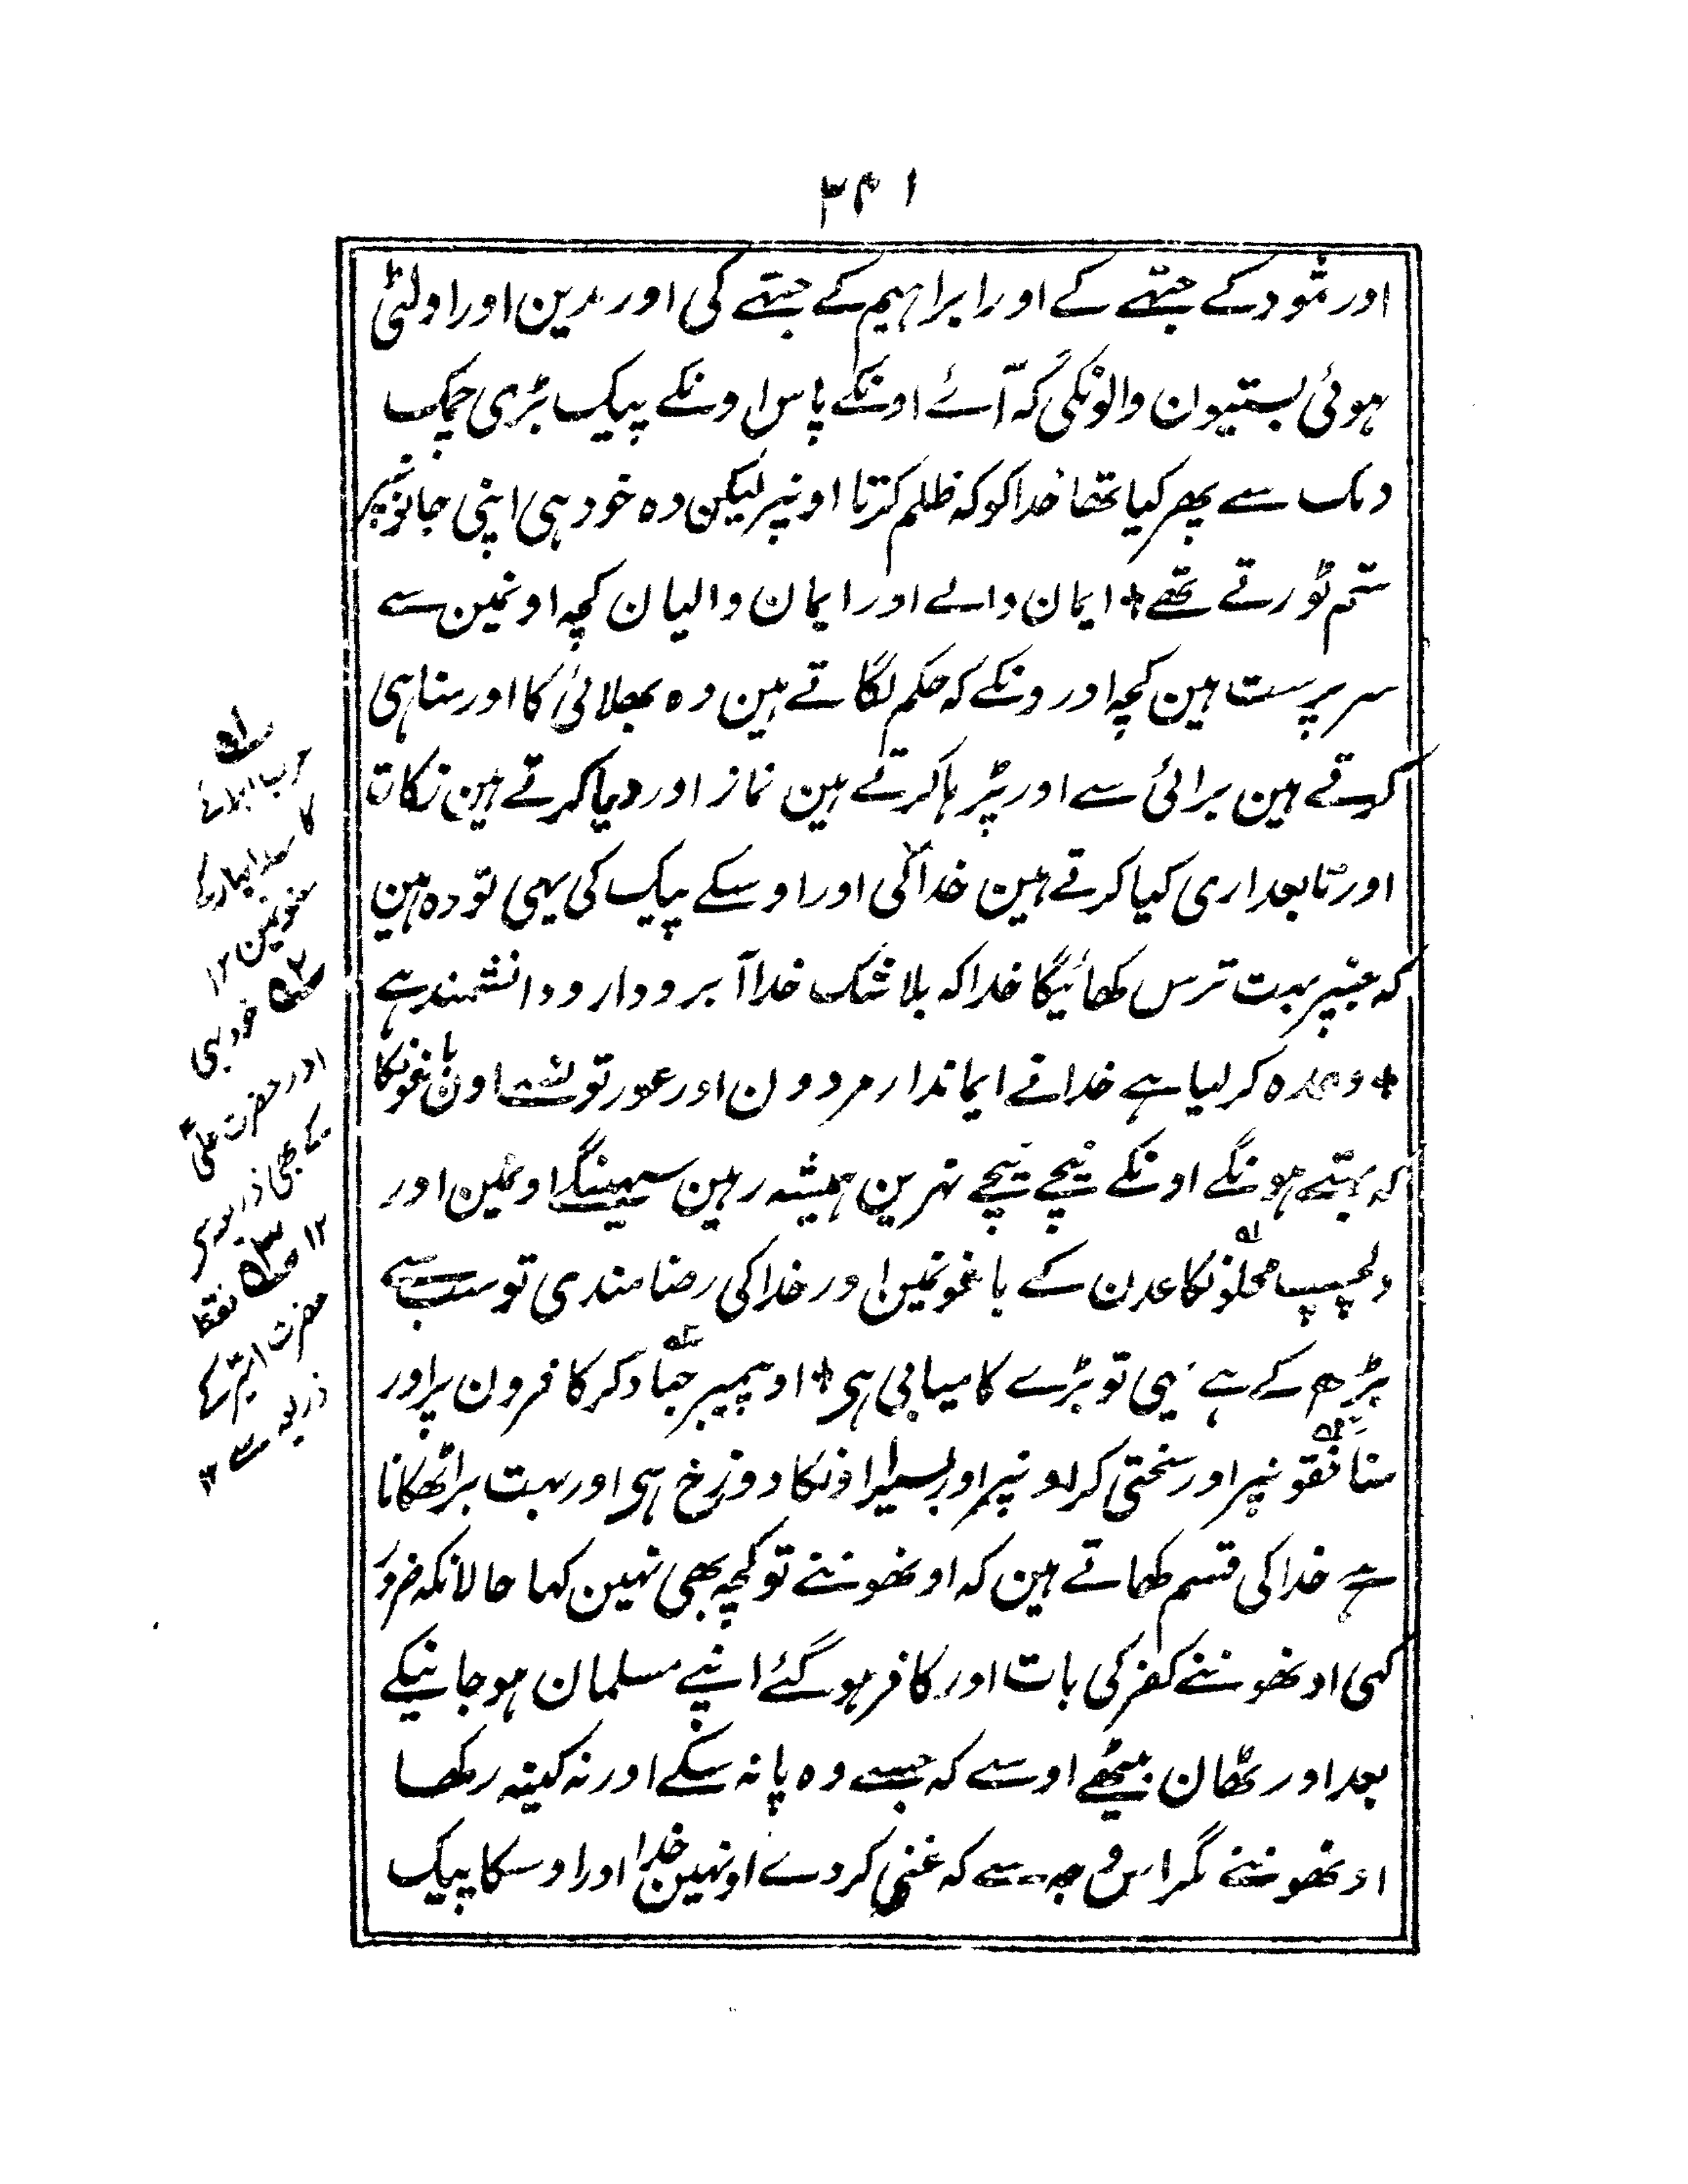 ۲۴۱
اور ثمود کے جتھے کے اور ابراہیم کے جتھے کی اور مدین اور اولٹی
ہوئی بستیون والونکی کہ آئے اونکے پاس اونکے پیک بڑی چمک
دمک سے پھر کیا تھا خدا کو کہ ظلم کرتا اونپر لیکن وہ خود ہی اپنی جانونپر
ستم توڑتے تھے + ایمان والے اور ایمان والیان کچہ اونمین سے
سرپرست ہین کچہ اورونکے کہ حکم لگاتے ہین وہ بھلائی کا اور مناہی
کرتے ہین برائی سے اور پڑہا کرتے ہین نماز اور دیا کرتے ہین زکاۃ
اور تابعداری کیا کرتے ہین خدا کی اور اوسکے پیک کی یہی تو وہ ہین
کہ جنپر بہت ترس کھائیگا خدا کہ بلاشک خدا آبرودار و دانشمند ہے
+ وعدہ کر لیا ہے خدا نے ایماندار مردون اور عورتونسے اون باغونکا
کہ بہتے ہونگے اونکے نیچے نیچے نہرین ہمیشہ رہین سہینگے اونمین اور
دلچسپ محلونکا عدن کے باغونمین اور خدا کی رضامندی تو سب سے
بڑھ کے ہے یہی تو بڑے کامیابی ہی + او پیمبر جہاد کر کافرون پر اور
منافقونپر اور سختی کر اونپر اور بسیرا اونکا دوزخ ہی اور بہت برا ٹھکانا
ہے خدا کی قسم کھاتے ہین کہ اونھوننے تو کچہ بھی نہین کہا حالانکہ ضرور
کہی اونھوننے کفر کی بات اور کافر ہو گئے اپنے مسلمان ہو جانیکے
بعد اور ٹھان بیٹھے اوسے کہ جسے وہ پا نہ سکے اور نہ کینہ رکھا
اونھوننے مگر اس وجہ سے کہ غنی کر دے اونہین خدا اور اوسکا پیک
۱
کا
۱۲
۲ خود بھی
اور حضرت علیؑ
کے بھی ذریعہ سے
۱۲ ۳ فقط
حضرت امیرؑ کے
ذریعہ سے ۱۲